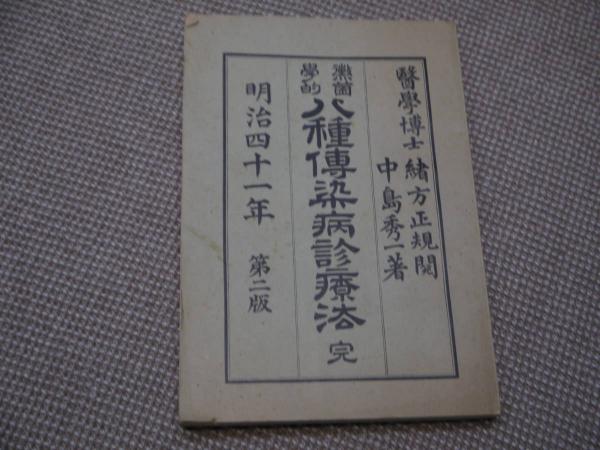 醫學博士 緒方正規閲
中島秀一著
黴菌學的 八種傳染病診療法 完
明治四十一年 第二版